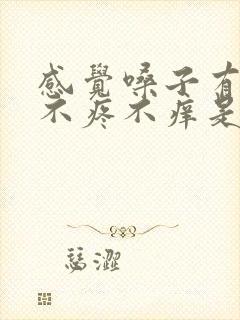 感覺嗓子有
不疼不癢是
瑟澀